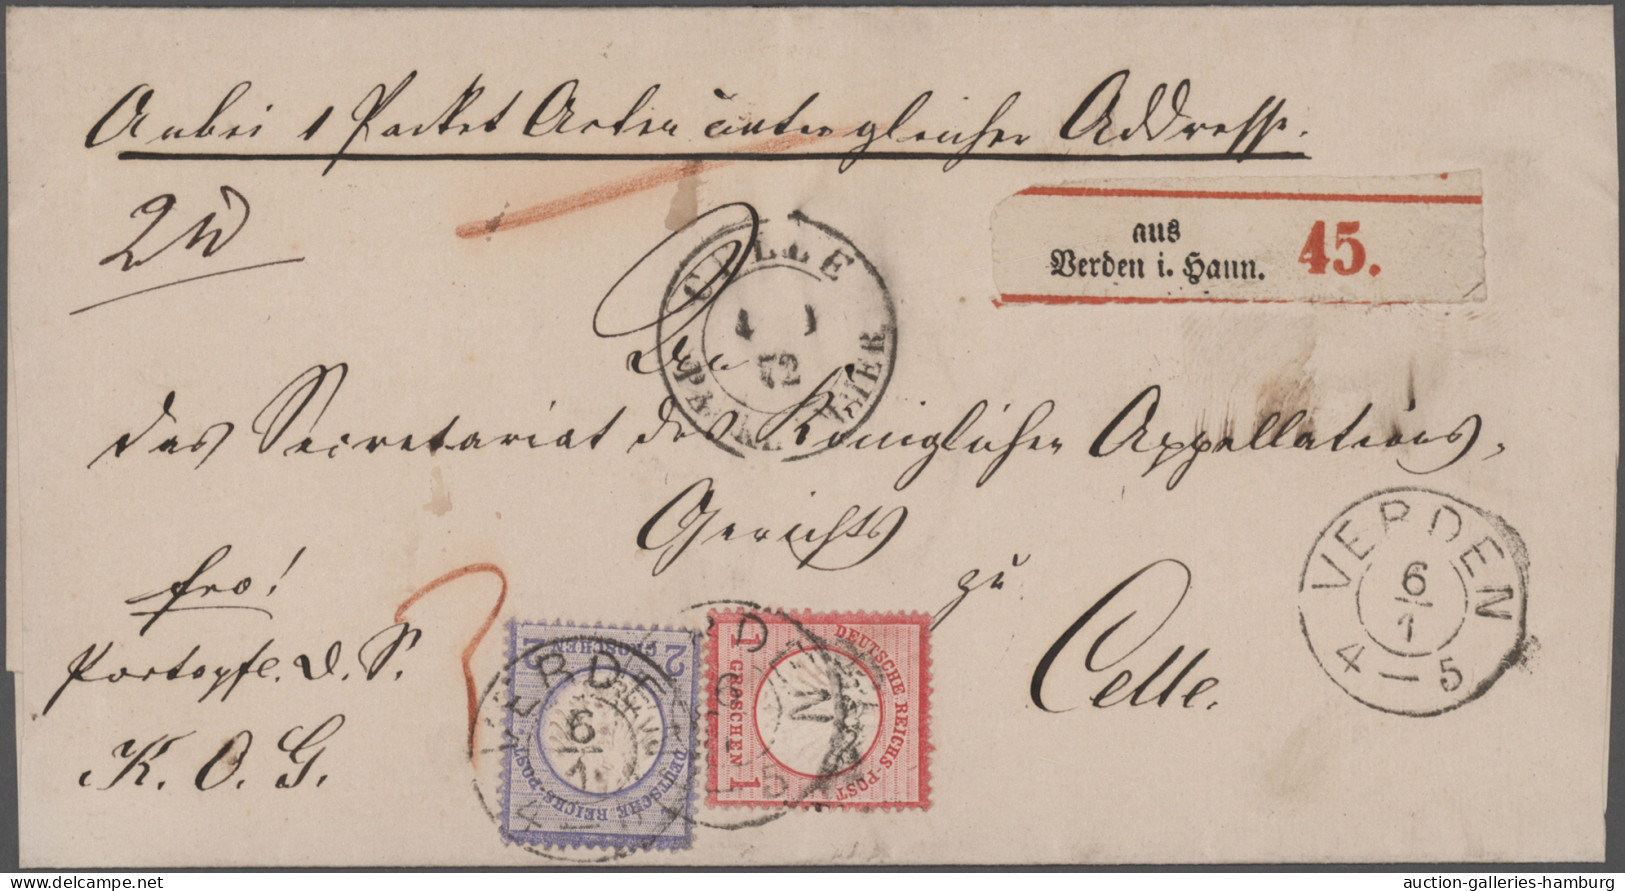 Anbei 1 Packet Acten unter gleicher Addresse.
2 W
aus
Verden i. Hann. 45.
CELLE
72
An
das Secretariat des Königlichen Appellations-
Gerichts
zu
Celle.
fro!
Portopfl. D. S.
K. O. G.
VERDEN
6
1
4 — 5
VERDEN
6
1
4
2 GROSCHEN 2
DEUTSCHE REICHS-POST
1 GROSCHEN 1
DEUTSCHE REICHS-POST
auction-galleries-hamburg